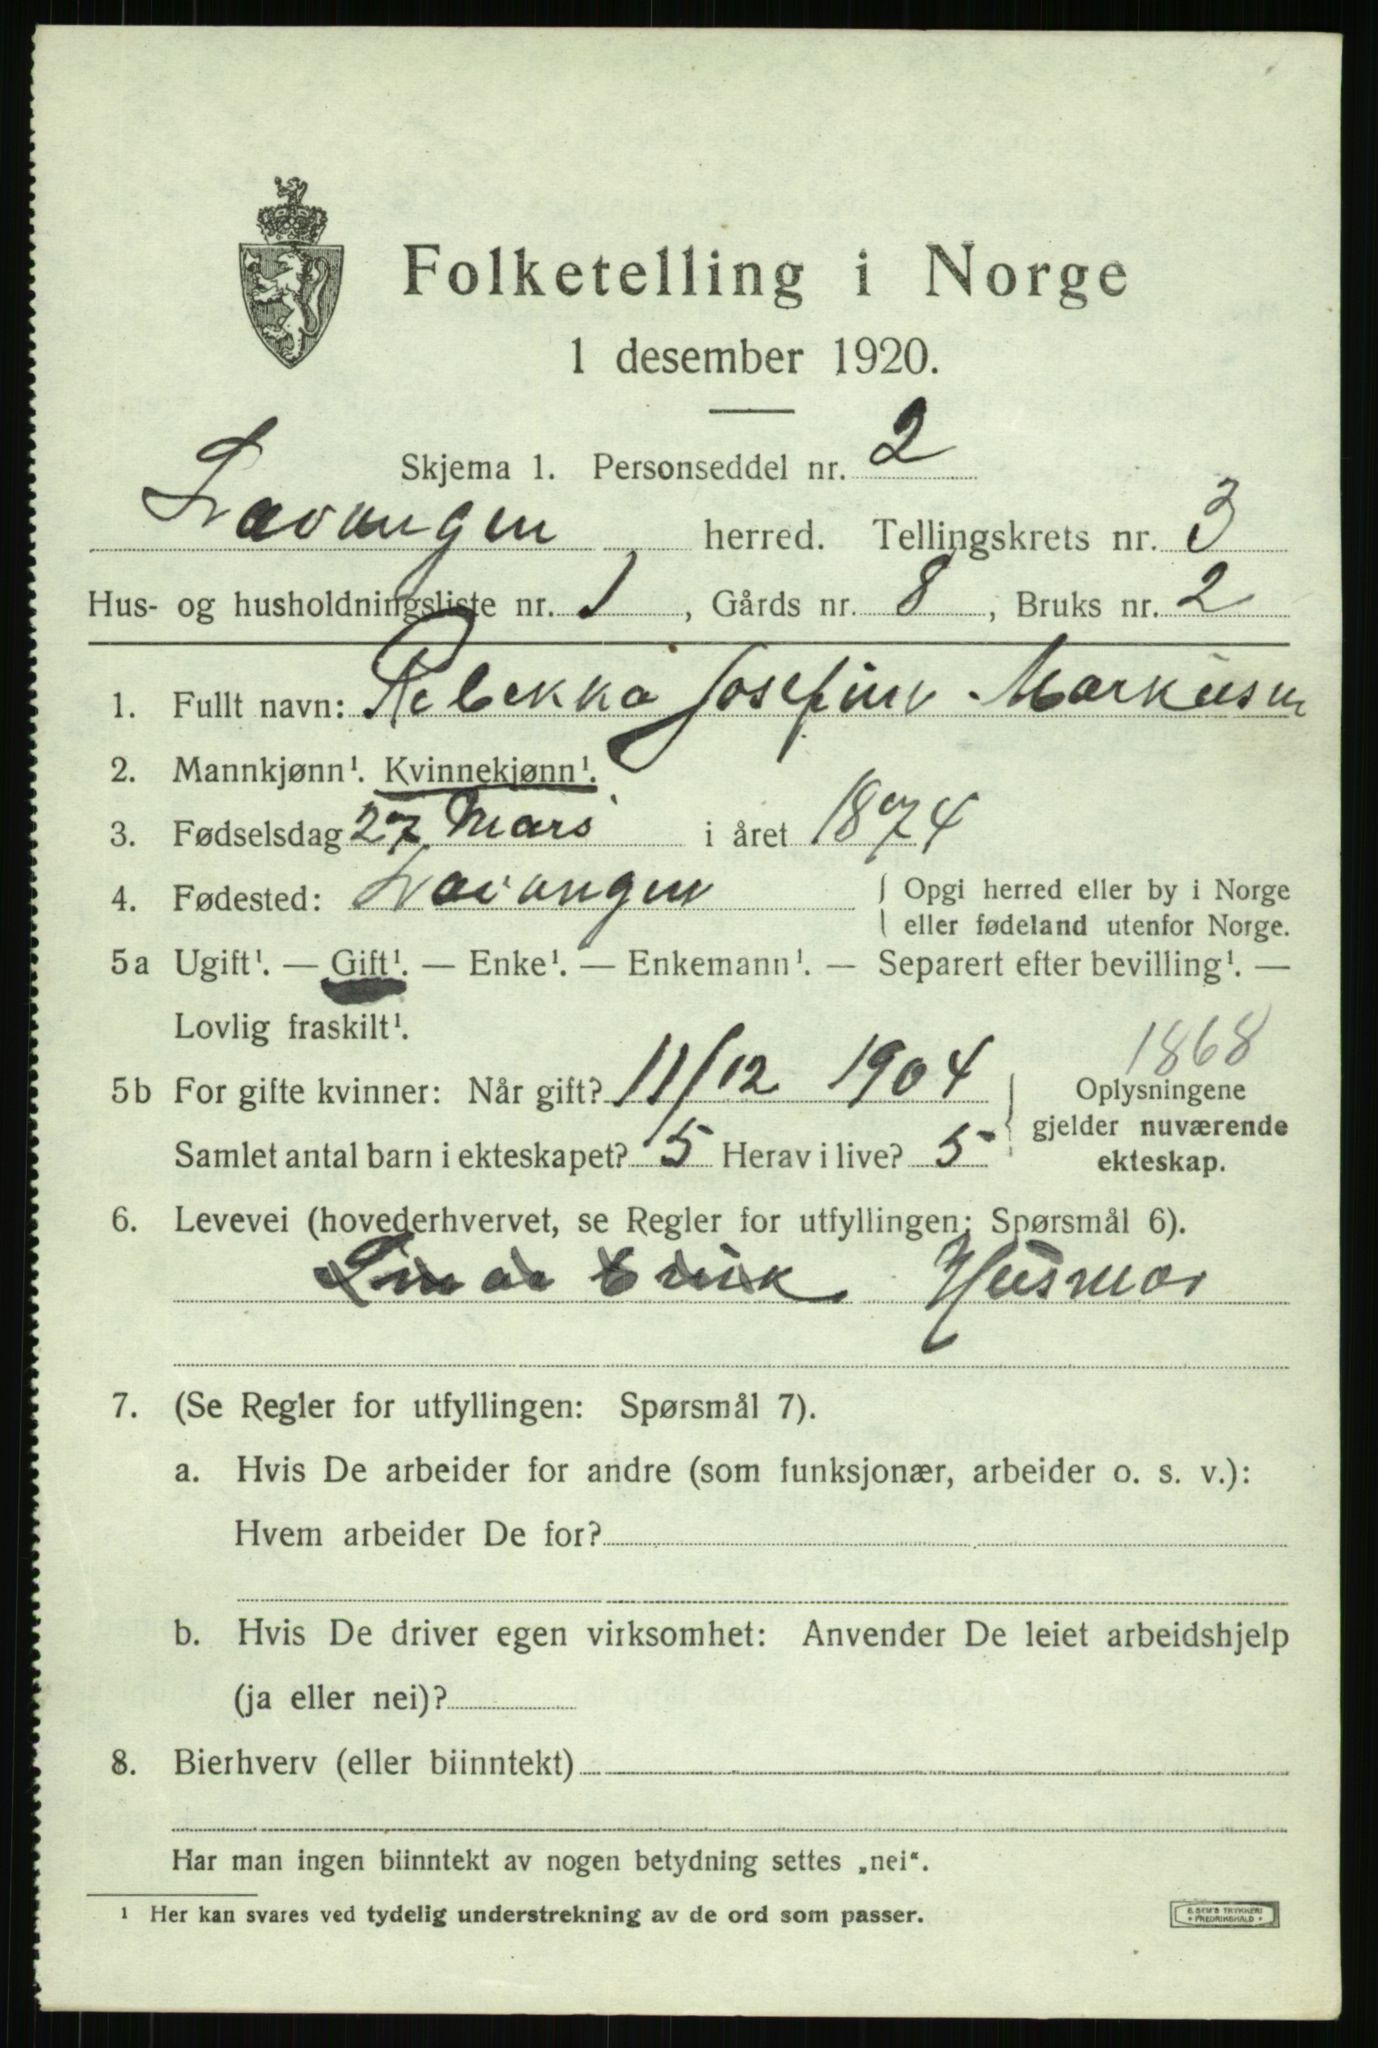 Folketelling i Norge
1 desember 1920.
Skjema 1. Personseddel nr. 2
Lavangen herred. Tellingskrets nr. 3
Hus- og husholdningsliste nr. 1, Gårds nr. 8, Bruks nr. 2
1. Fullt navn: Rebekka Josefine Markusen
2. Mannkjønn¹. Kvinnekjønn¹.
3. Fødselsdag 27 Mars i året 1874
4. Fødested: Lavangen { Opgi herred eller by i Norge
eller fødeland utenfor Norge.
5a Ugift¹. — Gift¹. — Enke¹. — Enkemann¹. — Separert efter bevilling¹. —
Lovlig fraskilt¹.
1868
5b For gifte kvinner: Når gift? 11/12 1904 } Oplysningene
gjelder nuværende
Samlet antal barn i ekteskapet? 5 Herav i live? 5
ekteskap.
6. Levevei (hovederhvervet, se Regler for utfyllingen; Spørsmål 6).
Husmor
7. (Se Regler for utfyllingen: Spørsmål 7).
a. Hvis De arbeider for andre (som funksjonær, arbeider o. s. v.):
Hvem arbeider De for?
b. Hvis De driver egen virksomhet: Anvender De leiet arbeidshjelp
(ja eller nei)?
8. Bierhverv (eller biinntekt)
Har man ingen biinntekt av nogen betydning settes „nei“.
¹ Her kan svares ved tydelig understrekning av de ord som passer.
E. SEM'S TRYKKERI
• FREDRIKSHALD •